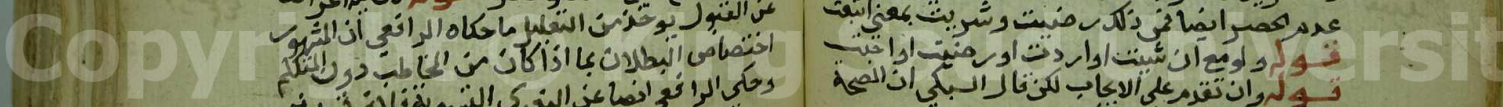 عدم الحصر ايضا فمن ذلك رضيت وشريت بمعني ابتعت
قوله ولو مع ان شئت او اردت او رضيت او احببت
قوله وان تقدم على الايجاب لكن قال السبكي ان الصحة
عن القبول يوخذ من التعليل ما حكاه الرافعي ان المشهور
اختصاص البطلان بما اذا كان من المخاطب دون المتكلم
وحكى الرافعي ايضا عن البغوي التسوية